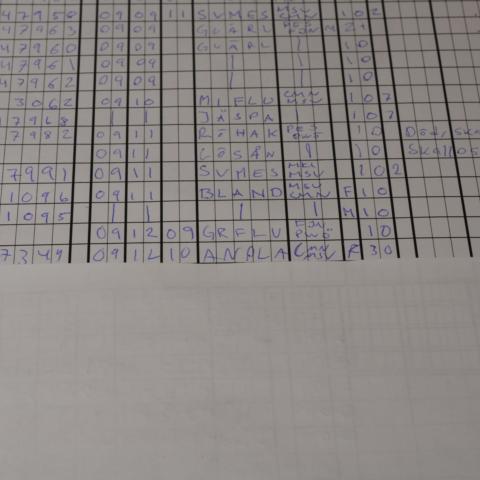 47950 0909 11 SVMES MSV CMN 102
47963 0909 GUARL
47960 0909 GUARL | 10
47961 0909 | | 10
47962 0909 | | 10
3062 0910 MIFLU CMN MSV 107
17968 | | JÄSPA | 107
7982 0911 RÖHAK 10
0911 LÖSÅN | 10
7991 0911 SVMES MSV 102
1096 0911 BLAND MSV CMN F 10
1095 | | | | M 10
0912 09 GRFLU 10
7344 0912 10 ANALA CMN MSV R 30